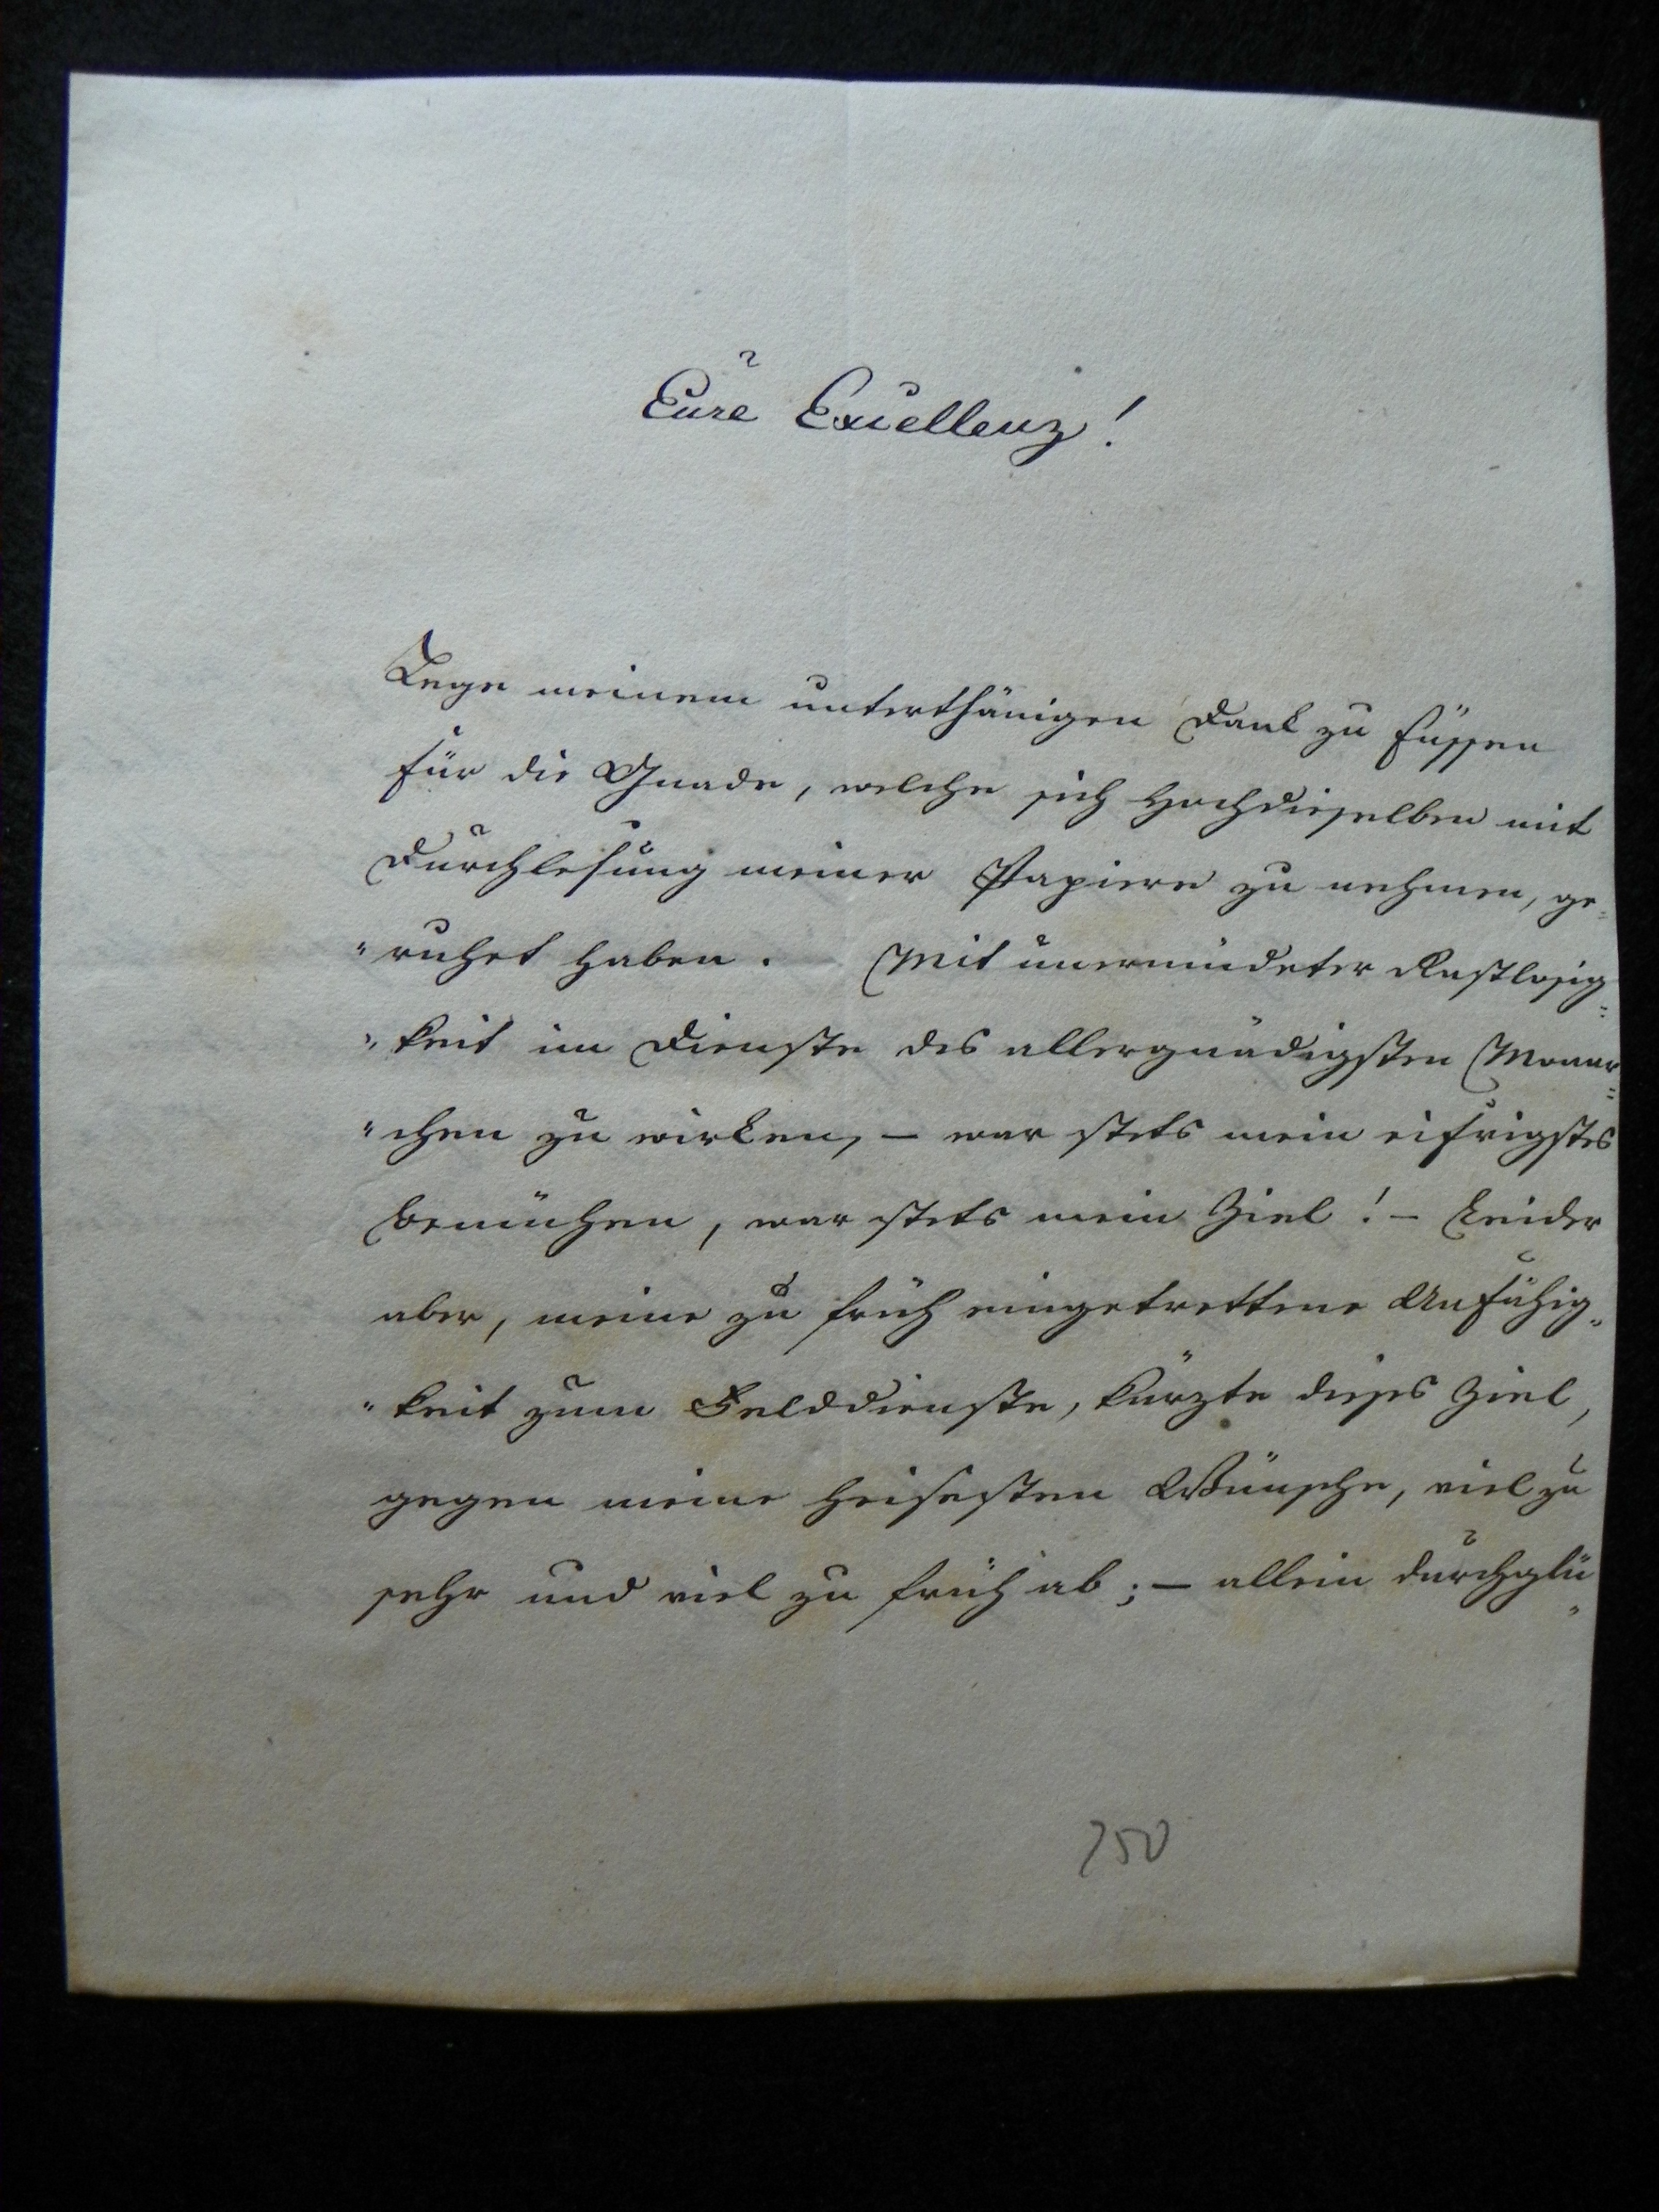 Eure Excellenz!
Lege meinem unterthänigen Dank zu Füssen
für die Gnade, welche sich Hochdieselben mit
Durchlesung meiner Papiere zu nehmen, ge=
"ruhet haben. Mit unermüdeter Rastlosig=
"keit im Dienste des allergnädigsten Monar=
"chen zu wirken, – war stets mein eifrigstes
Bemühen, war stets mein Ziel! – Leider
aber, meine zu früh eingetrettene Unfähig=
"keit zum Felddienste, kürzte dieses Ziel,
gegen meine heisesten Wünsche, viel zu
sehr und viel zu früh ab; – allein durchglü=
750